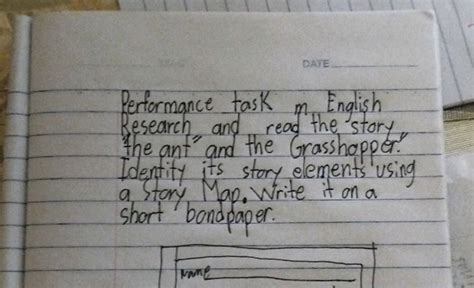 DATE
Performance task in English
Research and read the story
"the ant" and the Grasshopper."
Identify its story elements using
a Story Map. Write it on a
short bondpaper.
Name